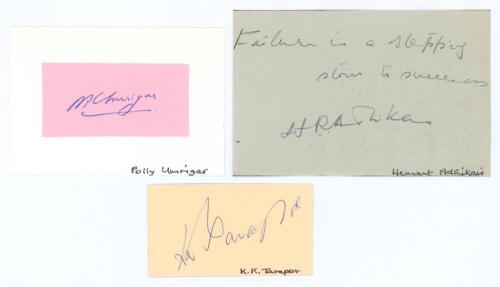 P R Umrigar
Polly Umrigar
Failure is a stepping
stone to success
H R Adhikari
Hemant Adhikari
K.K. Tarapor